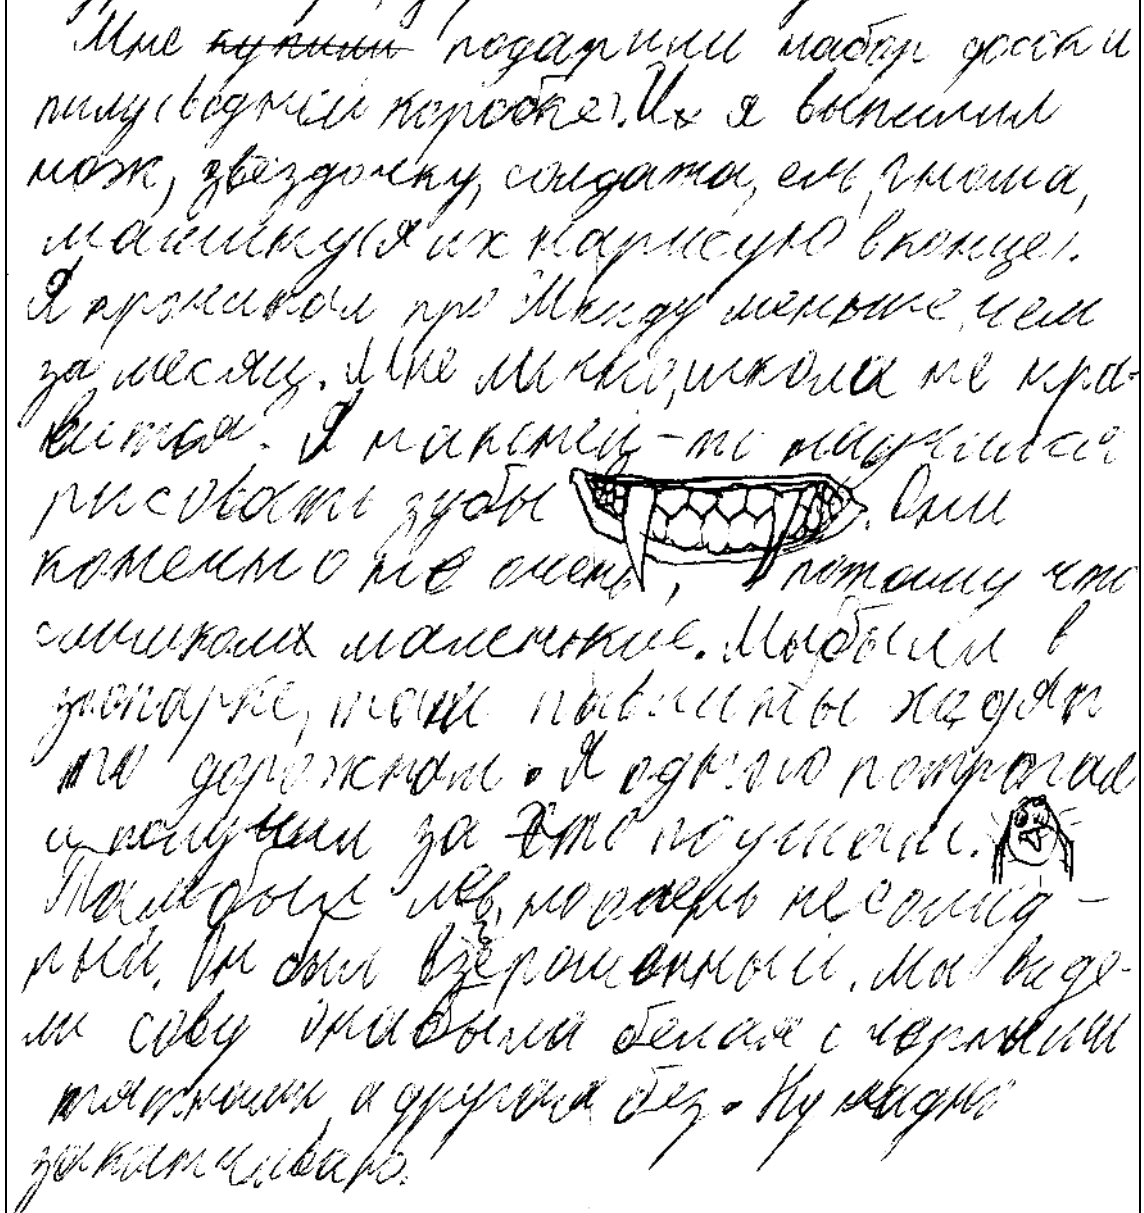 Мне купили подарили набор доски
пилу (в одной коробке). Их я выпилил
нож, звёздочку, солдата, ель, гнома,
машину (я их нарисую в конце).
Я прочитал про Мкиду меньше, чем
за месяц. Мне лично, школа не нра-
вится. Я наконец-то научился
рисовать зубы. Они
конечно не очень, потому что
слишком маленькие. Мы были в
зоопарке, там павлины ходят
по дорожкам. Я одного потрогал
и получил за это по ушам.
Там был лев, теперь не солид-
ный. Он был взерошенный. Мы виде-
ли сову она была белая с чёрными
пятнами, а другая без. Ну ладно
заканчиваю.